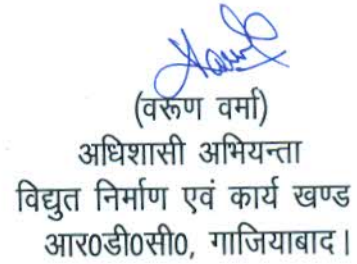 (वरूण वर्मा)
अधिशासी अभियन्ता
विद्युत निर्माण एवं कार्य खण्ड
आर0डी0सी0, गाजियाबाद।